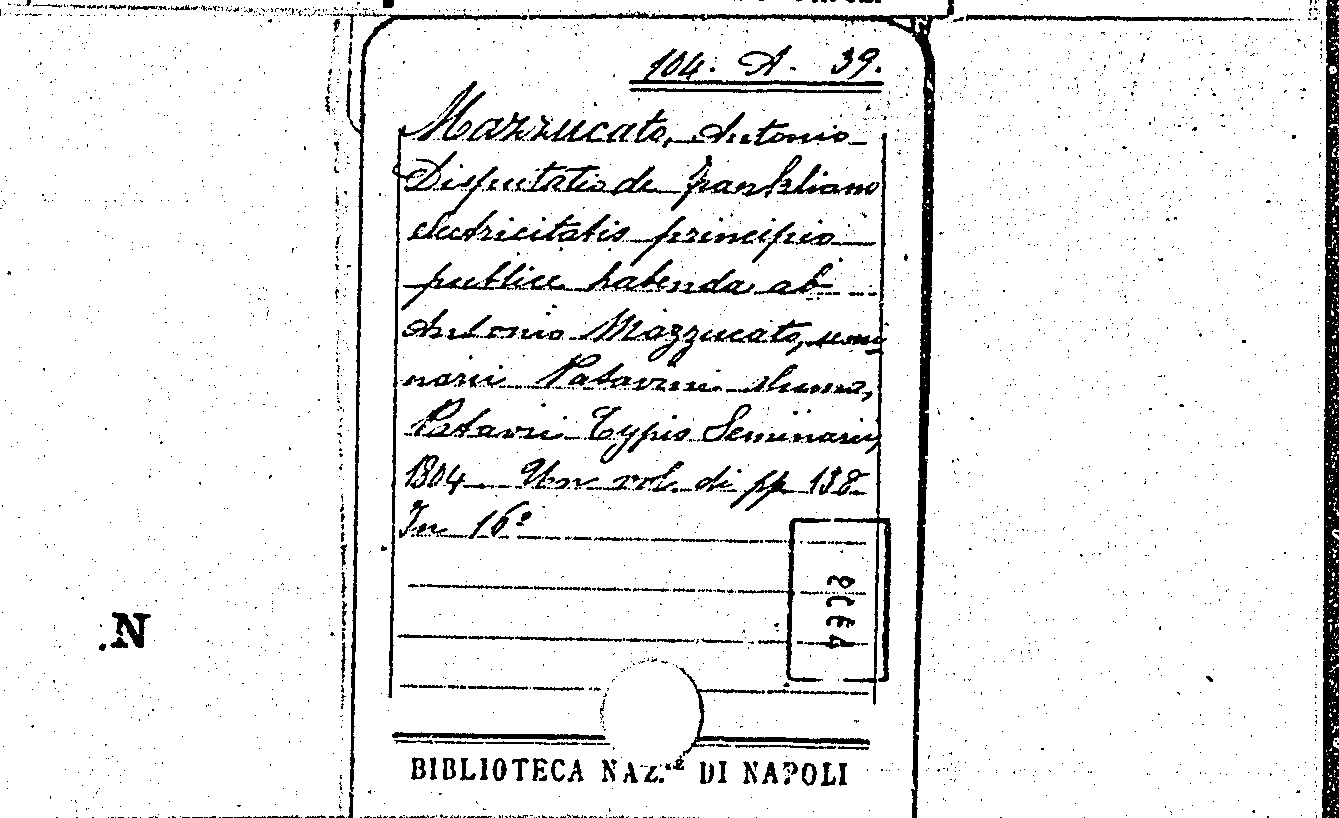 104. A. 39.
Mazzucato, Antonio
Disputatio de frankliano
electricitatis principio
publice habenda ab
Antonio Mazzucato, semi
narii Patavini alumno,
Patavii Typis Seminarii,
1804 Un vol. di pp 138
In 16º
.N
BIBLIOTECA NAZ.LE DI NAPOLI